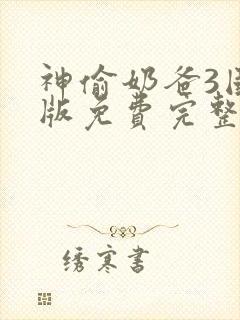 神偷奶爸3
版免费完整
绣寒书